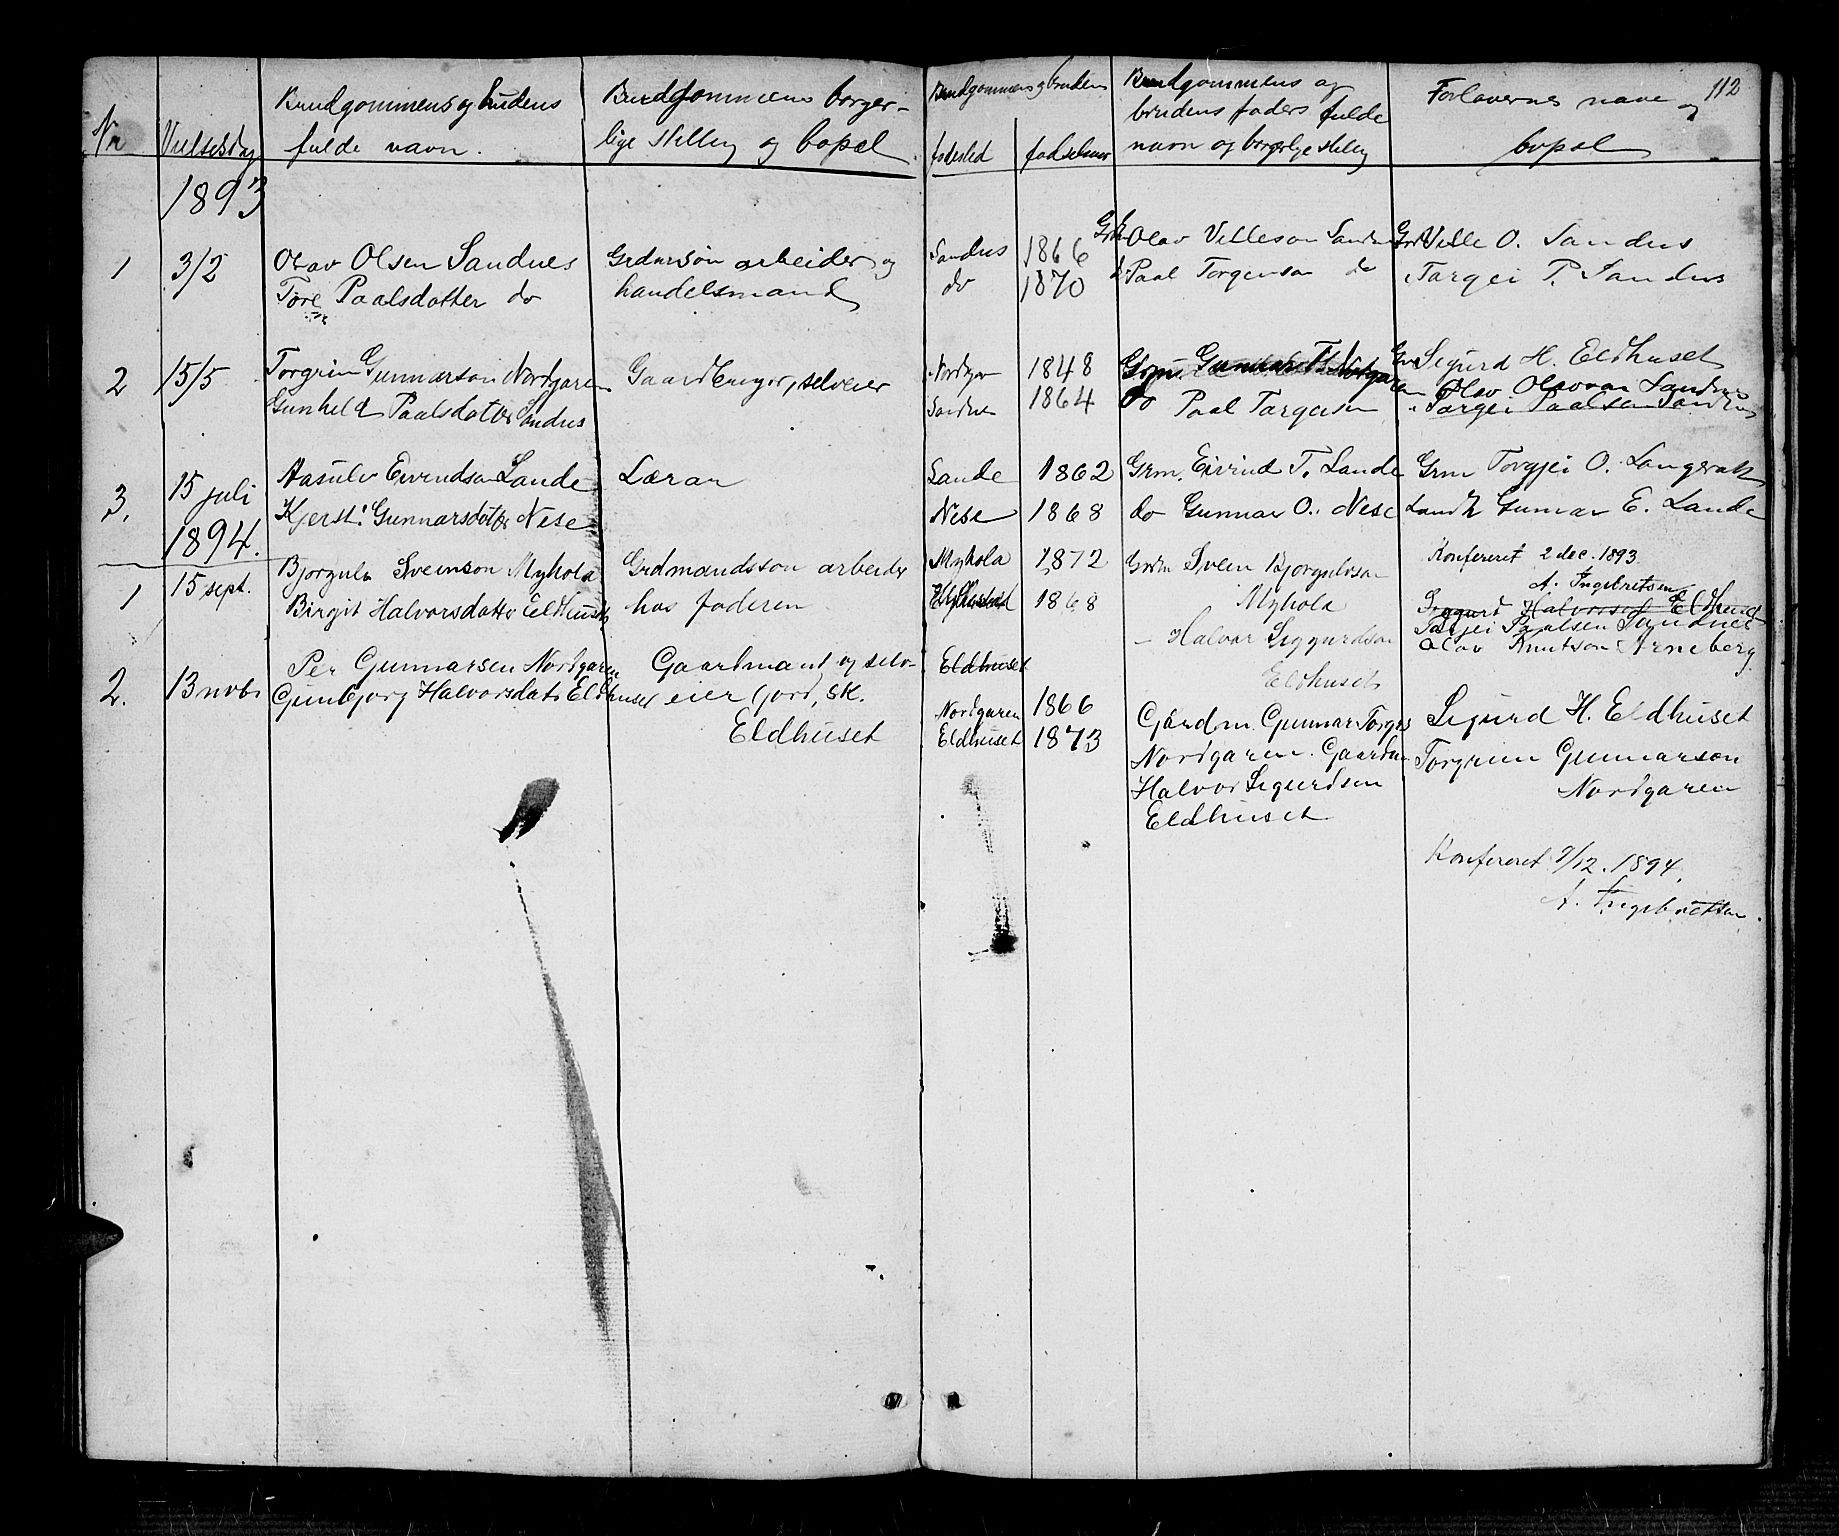 112
Nr
Vielsesdag
Brudgommens og brudens
fulde navn.
Brudgommens borger-
lige stilling og bopæl.
Brudgommens og brudens
fødested
fødselsaar
Brudgommens og
brudens faders fulde
navn og borgerlige stilling
Forlovernes navne og
bopæl
1893
1 3/2
Olav Olsen Sandnes
Tore Paalsdatter do
Grdmrsøn arbeider og
handelsmand
Sandnes 1866
do 1870
Grdm Olav Villeson Sandnes
do Paal Torgerson do
Grdm Ville O. Sandnes
Targei P. Sandnes
2 15/5
Torgrim Gunnarson Nordgaren
Gunhild Paalsdatter Sandnes
Gaardbruger, selveier
Nordgar 1848
Sandnes 1864
Grm. Gunnar T. Nordgaren
do Paal Targeisen
Grm Sigurd H. Eldhuset
Olav Olavson Sandnes
Targei Paalsen Sandnes
3. 15 juli
Aasulv Eivendson Lande
Kjersti Gunnarsdatter Nese
Lærar
Lande 1862
Nese 1868
Grm. Eivind T. Lande
do Gunnar O. Nese
Grm Torgjei O. Langerak
Landh Gunnar E. Lande
1894.
Konfereret 2 dec. 1893
A. Ingebretsen
1 15 sept.
Bjorgulv Sveinson Myhola
Birgit Halvorsdatter Eldhuset
Grdmandsson arbeider
hos faderen
Myhola 1872
1868
Eldhuset
Grdm Svein Bjorgulvson
Myhola
- Halvor Siggurdson
Eldhuset
Siggurd Halvorson Eldhuset
Targei Paalsen Sandnes
Olav Knutson Arneberg
2. 13 novb.
Per Gunnarsen Nordgaren
Gunbjorg Halvorsdatr Eldhuset
Gaardmand og selv-
eier (jord, SK.
Eldhuset
Nordgaren 1866
Eldhuset 1873
Gardm. Gunnar Torgrs
Nordgaren. Gaardm
Halvor Sigurdsen
Eldhuset
Sigurd H. Eldhuset
Torgrim Gunnarson
Nordgaren
Konfereret 7/12. 1894.
A. Ingebretsen.